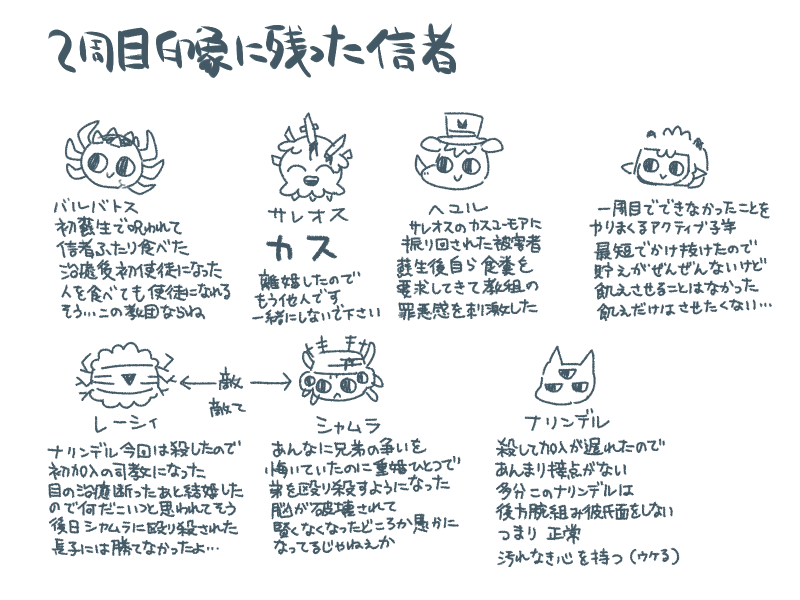 2周目印象に残った信者
バルバトス
初蘇生で呪われて
信者ふたり食べた
治癒後初使徒になった
人を食べても使徒になれる
そう…この教団ならね
サレオス
カス
離婚したので
もう他人です
一緒にしないで下さい
ヘユル
サレオスのカスユーモアに
振り回された被害者
蘇生後自ら食糞を
要求してきて教祖の
罪悪感を刺激した
一周目でできなかったことを
やりまくるアクティブ子羊
最短でかけ抜けたので
貯えがぜんぜんないけど
飢えさせることはなかった
飢えだけはさせたくない…
レーシィ
ナリンデル今回は殺したので
初加入の司教になった
目の治癒断ったあと結婚した
ので何だこいつと思われてそう
後日シャムラに殴り殺された
長子には勝てなかったよ…
敵
敵て
シャムラ
あんなに兄弟の争いを
悔いていたのに重婚ひとつで
弟を殴り殺すようになった
脳が破壊されて
賢くなくなったどころか愚かに
なってるじゃねえか
ナリンデル
殺して加入が遅れたので
あんまり接点がない
多分このナリンデルは
後方腕組み彼氏面をしない
つまり 正常
汚れなき心を持つ（ウケる）